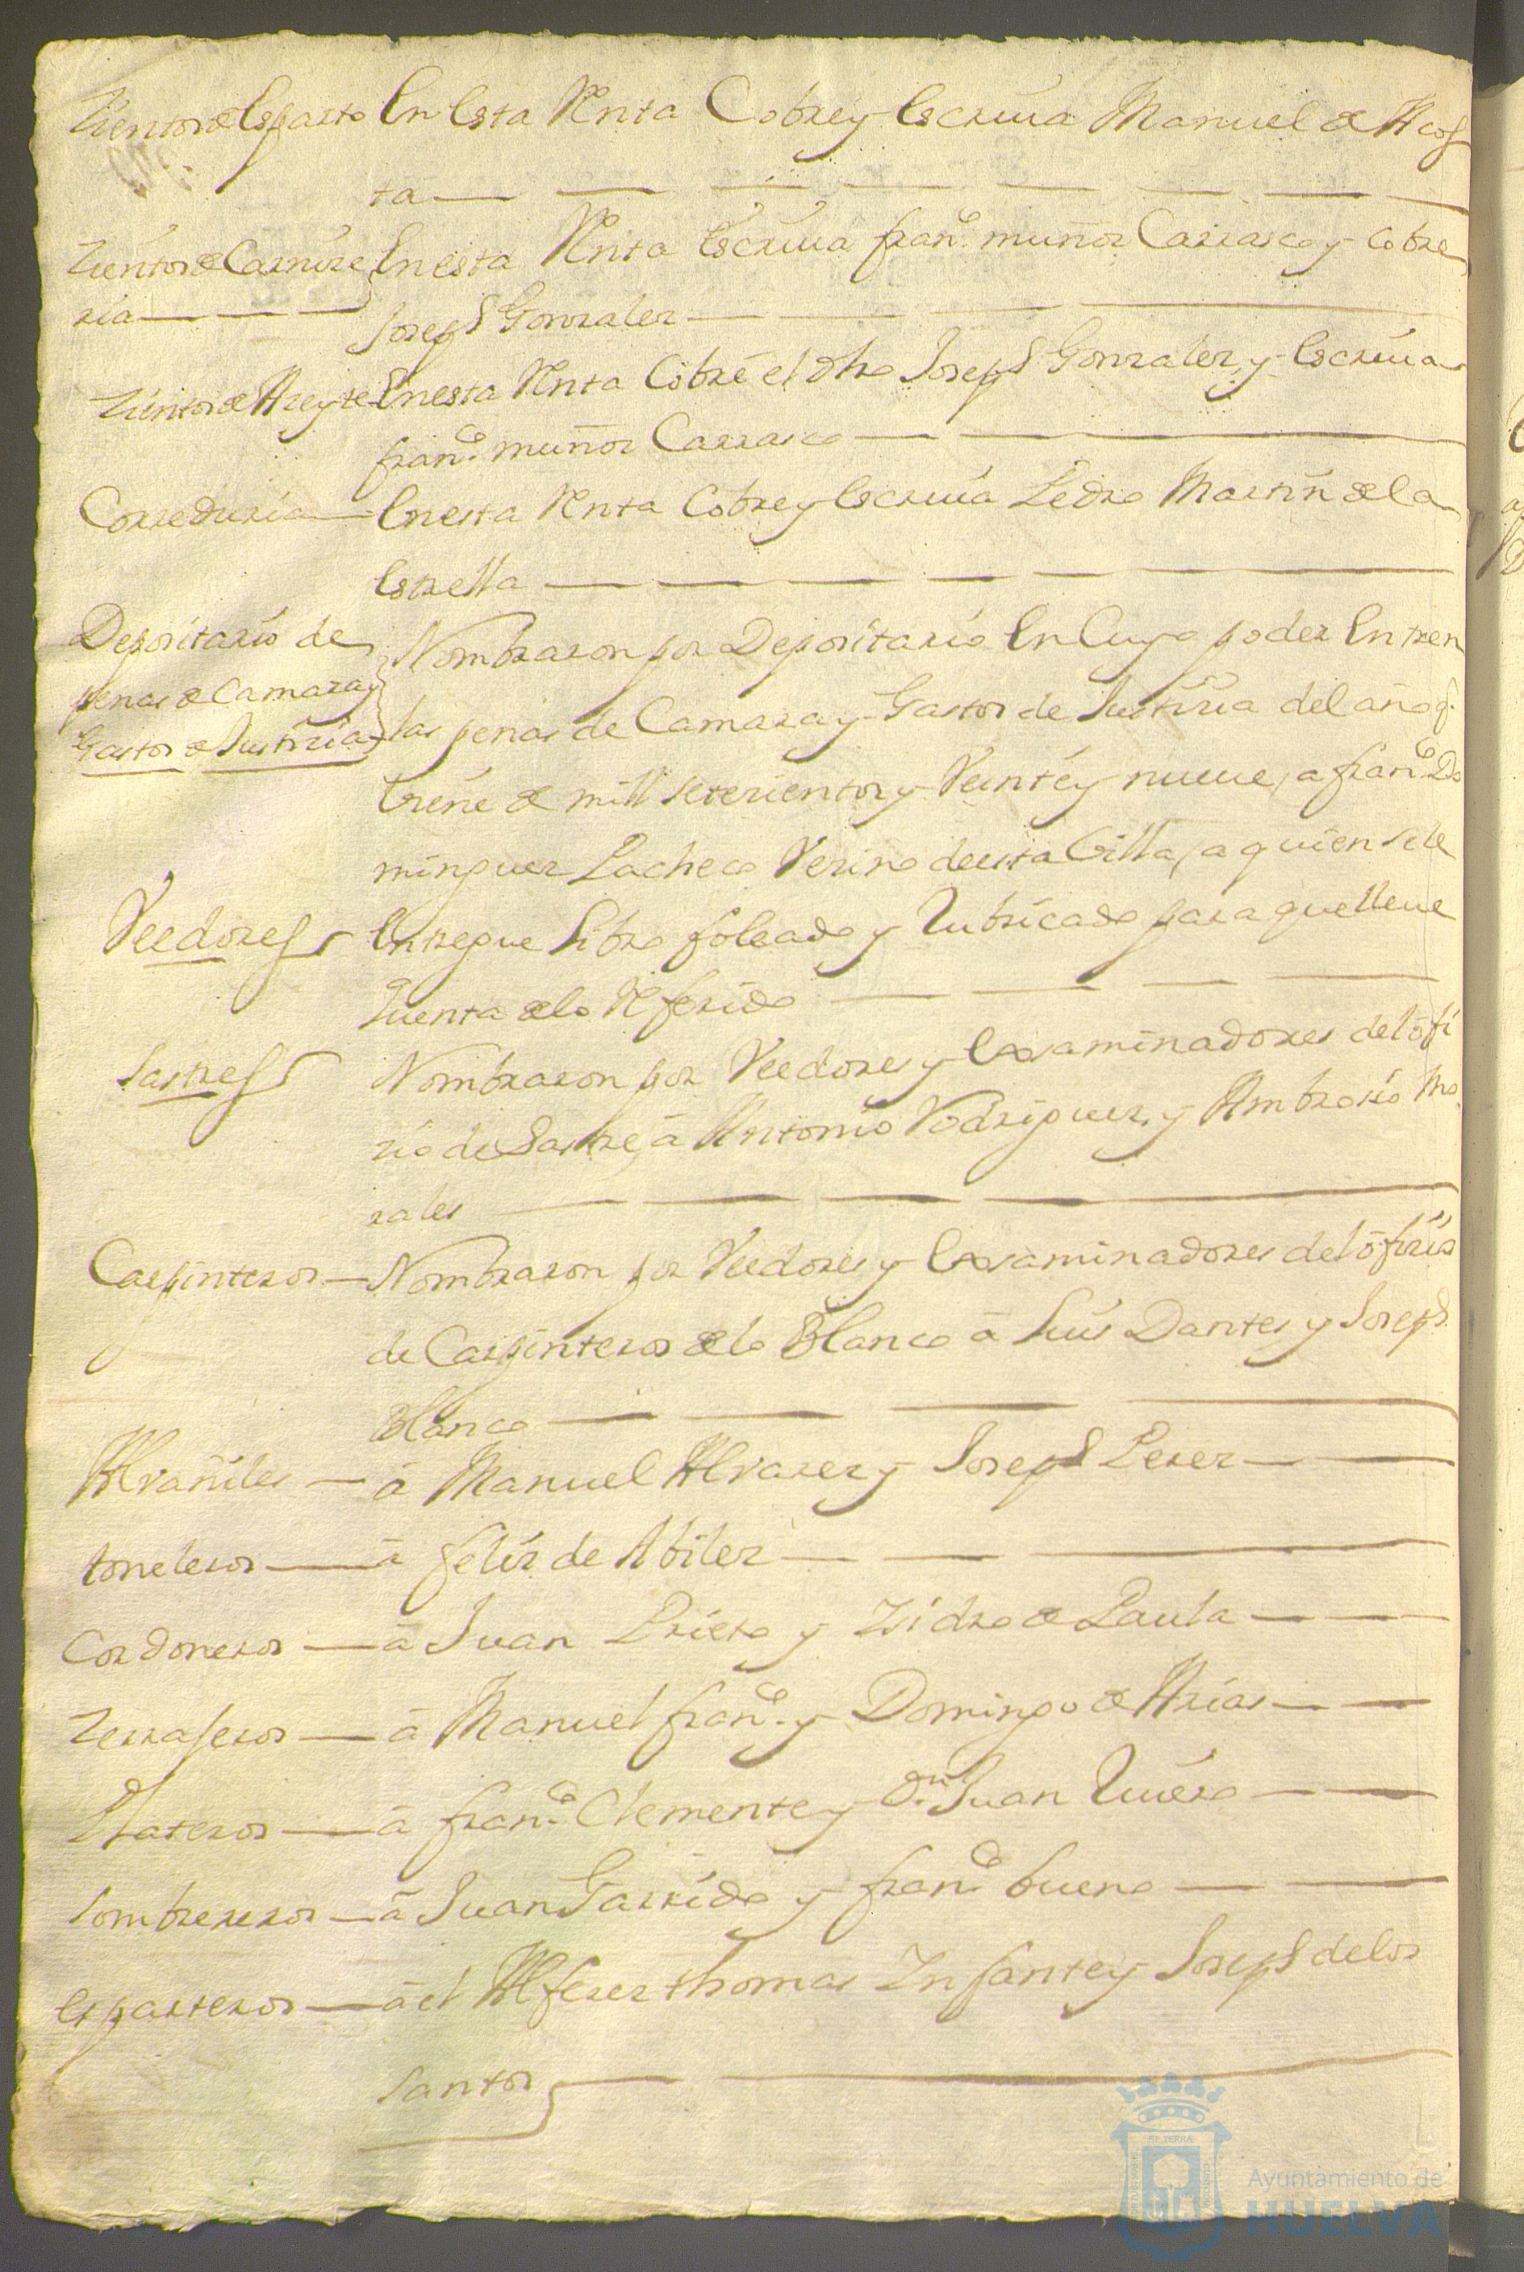 Zientos de Esparto En Esta Renta Cobre y Escriua Manuel de Acos
ta
Zientos de Carnize En esta Renta Escriua fran.co muños Carrasco y Cobre
ria Joseph Gonzales
Zientos de Azeyte En esta Renta Cobre el dho Joseph Gonzales, y Escriua
fran.co muños Carrasco
Correduria En esta Renta Cobre y Escriua Pedro Martin de la
Estrella
Depositario de
penas de Camara y
Gastos de Justizia
Nombraron por Depositario En Cuyo poder Entren
las penas de Camara y Gastos de Justizia del año q.
Viene de mill setezientos y Veinte y nueue, a fran.co Do
minguez Pacheco Vezino de esta Villa, a quien se le
Veedores Entregue Libro foleado y Rubricado para que lleue
Quenta de lo Referido
Sastres Nombraron por Veedores y Examinadores del ofi
zio de Sastre, a Antonio Rodriguez, y Ambrosio Mo
rales
Carpinteros Nombraron por Veedores y Examinadores del ofizio
de Carpinteros de lo Blanco a Luis Dantes y Joseph
Blanco
Alvañiles a Manuel Alvarez y Joseph Perez
toneleros a Feliz de Abiles
Cordoneros a Juan Prieto y Isidro de Paula
Zerrajeros a Manuel fran.co y Domingo de Arias
Plateros a fran.co Clemente y Dn. Juan Quiero
Sombrereros a Juan Garrido y fran.co bueno
esparteros a el Alferez thomas Infante y Joseph de los
Santos
Ayuntamiento de
HUELVA